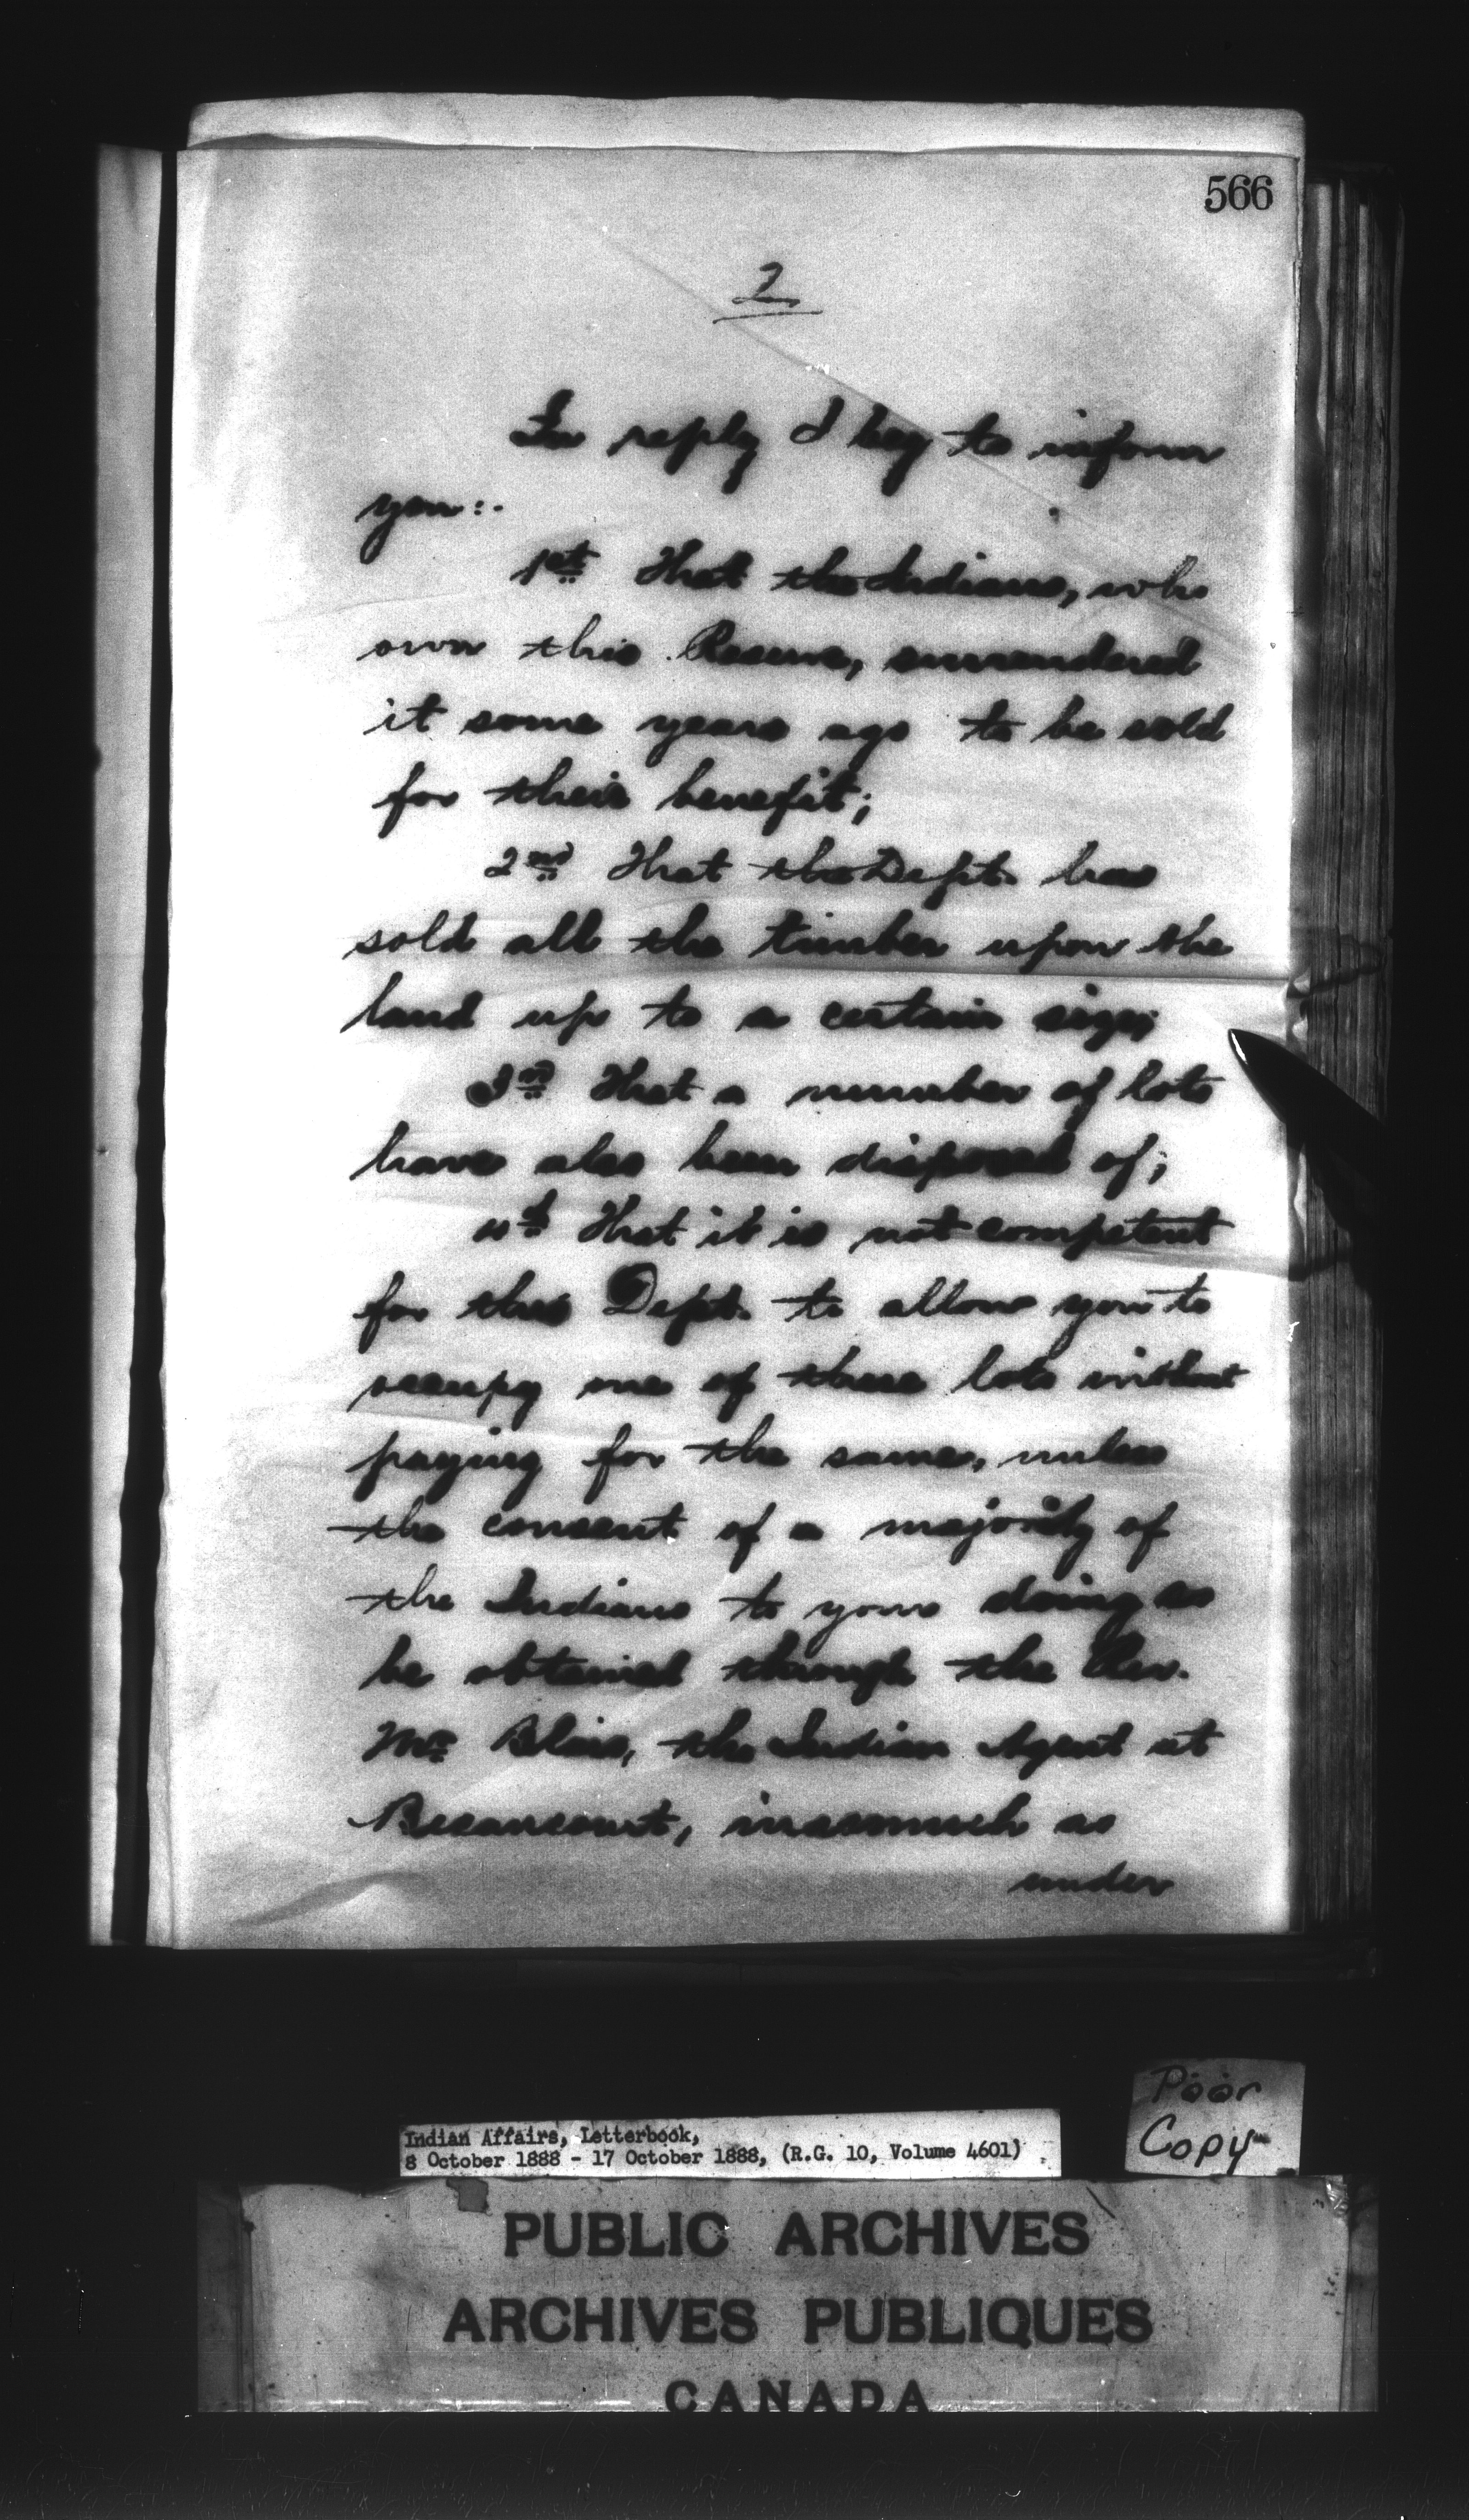 566
2
In reply I beg to inform
you:-
1st That the Indians, who
own this Reserve, surrendered
it some years ago to be sold
for their benefit;
2nd That the Dept. has
sold all the timber upon the
land up to a certain size;
3rd That a number of lots
have also been disposed of;
4th That it is not competent
for this Dept. to allow you to
occupy one of these lots without
paying for the same, unless
the consent of a majority of
the Indians to your doing so
be obtained through the Rev.
Mr Blais, the Indian Agent at
Becancourt, inasmuch as
under
Poor
Copy
Indian Affairs, Letterbook,
8 October 1888 - 17 October 1888, (R.G. 10, Volume 4601)
PUBLIC ARCHIVES
ARCHIVES PUBLIQUES
CANADA